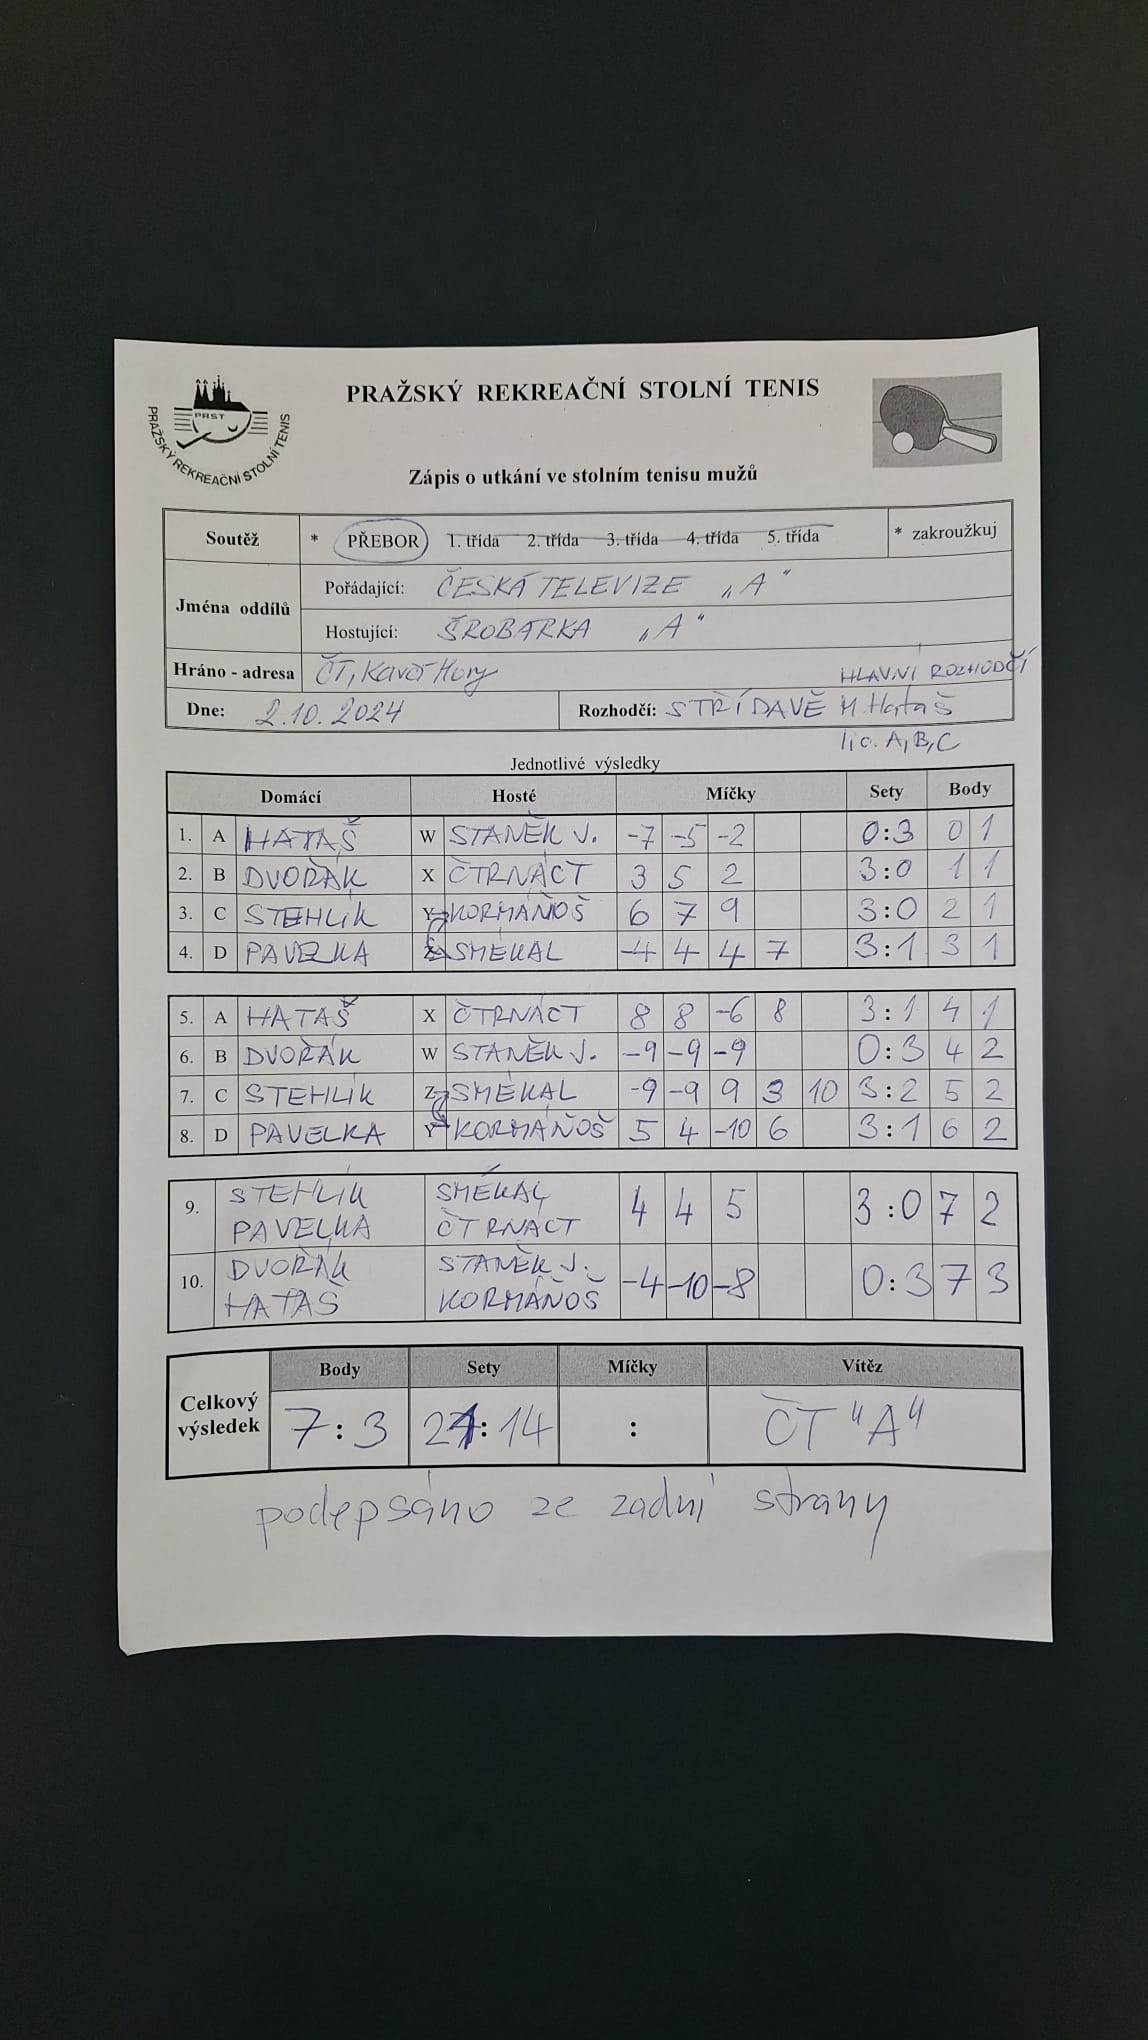 PRAŽSKÝ REKREAČNÍ STOLNÍ TENIS
PRST
PRAŽSKÝ REKREAČNÍ STOLNÍ TENIS
Zápis o utkání ve stolním tenisu mužů
Soutěž * PŘEBOR 1. třída 2. třída 3. třída 4. třída 5. třída * zakroužkuj
Jména oddílů
Pořádající: ČESKÁ TELEVIZE „A"
Hostující: ŠROBARKA „A"
Hráno - adresa ČT, Kavčí Hory
HLAVNÍ ROZHODČÍ
Dne: 2.10.2024 Rozhodčí: STŘÍDAVĚ M. Hataš
lic. A,B,C
Jednotlivé výsledky
Domácí Hosté Míčky Sety Body
1. A HATAŠ W STANĚK J. -7 -5 -2 0:3 0 1
2. B DVOŘÁK X ČTRNÁCT 3 5 2 3:0 1 1
3. C STEHLÍK Y KORMÁŇOŠ 6 7 9 3:0 2 1
4. D PAVELKA Z SMÉKAL -4 4 4 7 3:1 3 1
5. A HATAŠ X ČTRNÁCT 8 8 -6 8 3:1 4 1
6. B DVOŘÁK W STANĚK J. -9 -9 -9 0:3 4 2
7. C STEHLÍK Z SMÉKAL -9 -9 9 3 10 3:2 5 2
8. D PAVELKA Y KORMÁŇOŠ 5 4 -10 6 3:1 6 2
9. STEHLÍK SMÉKAL 4 4 5 3:0 7 2
PAVELKA ČTRNÁCT
10. DVOŘÁK STANĚK J. -4 -10 -8 0:3 7 3
HATAŠ KORMÁŇOŠ
Celkový výsledek
Body Sety Míčky Vítěz
7:3 21:14 : ČT "A"
podepsáno ze zadní strany